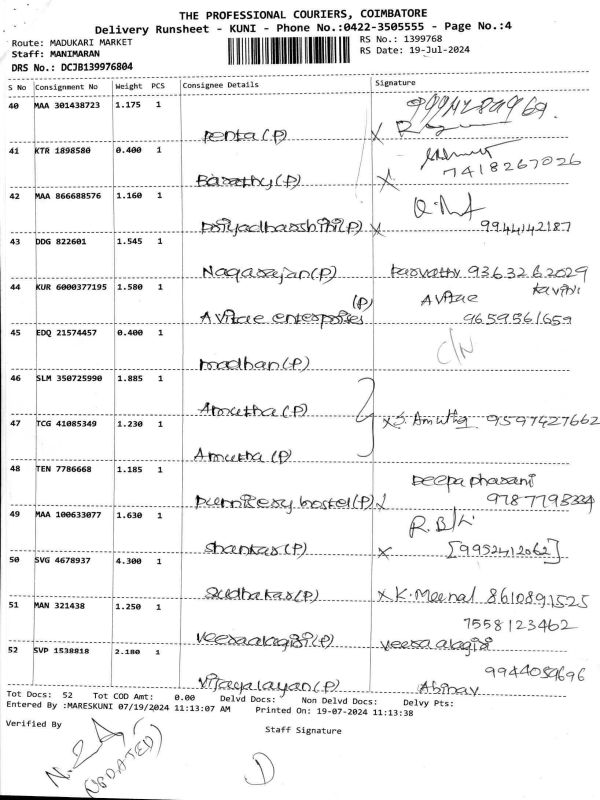 THE PROFESSIONAL COURIERS, COIMBATORE
Delivery Runsheet - KUNI - Phone No.:0422-3505555 - Page No.:4
Route: MADUKARI MARKET
RS No.: 1399768
Staff: MANIMARAN
RS Date: 19-Jul-2024
DRS No.: DCJB139976804
S No Consignment No Weight PCS Consignee Details Signature
40 MAA 301438723 1.175 1
Penta (P) X
41 KTR 1898580 0.400 1
7418267026
Barathy (P) X
42 MAA 866688576 1.160 1
Priyadharshini (P) X 9944142187
43 DDG 822601 1.545 1
Nagarajan (P) Parvathy 9363262029
44 KUR 6000377195 1.580 1
(P) A Vitae
A Vitae enterprises 9659561659
45 EDQ 21574457 0.400 1
C/N
madhan (P)
46 SLM 350725990 1.885 1
Amutha (P)
47 TCG 41085349 1.230 1
X S. Amutha 9597427662
Amutha (P)
48 TEN 7786668 1.185 1
Deepa pharani
hostel (P) X
49 MAA 100633077 1.630 1
Shankar (P) X [9952412062]
50 SVG 4678937 4.300 1
Sudhakar (P) X K. Meenal 8610891525
51 MAN 321438 1.250 1
7558123462
Veeraalagiri (P) veeraalagiri
52 SVP 1538818 2.180 1
9944059696
Vijayalayan (P) Abinav
Tot Docs: 52 Tot COD Amt: 0.00 Delvd Docs: Non Delvd Docs: Delvy Pts:
Entered By :MARESKUNI 07/19/2024 11:13:07 AM Printed On: 19-07-2024 11:13:38
Verified By
Staff Signature
(UPDATED)